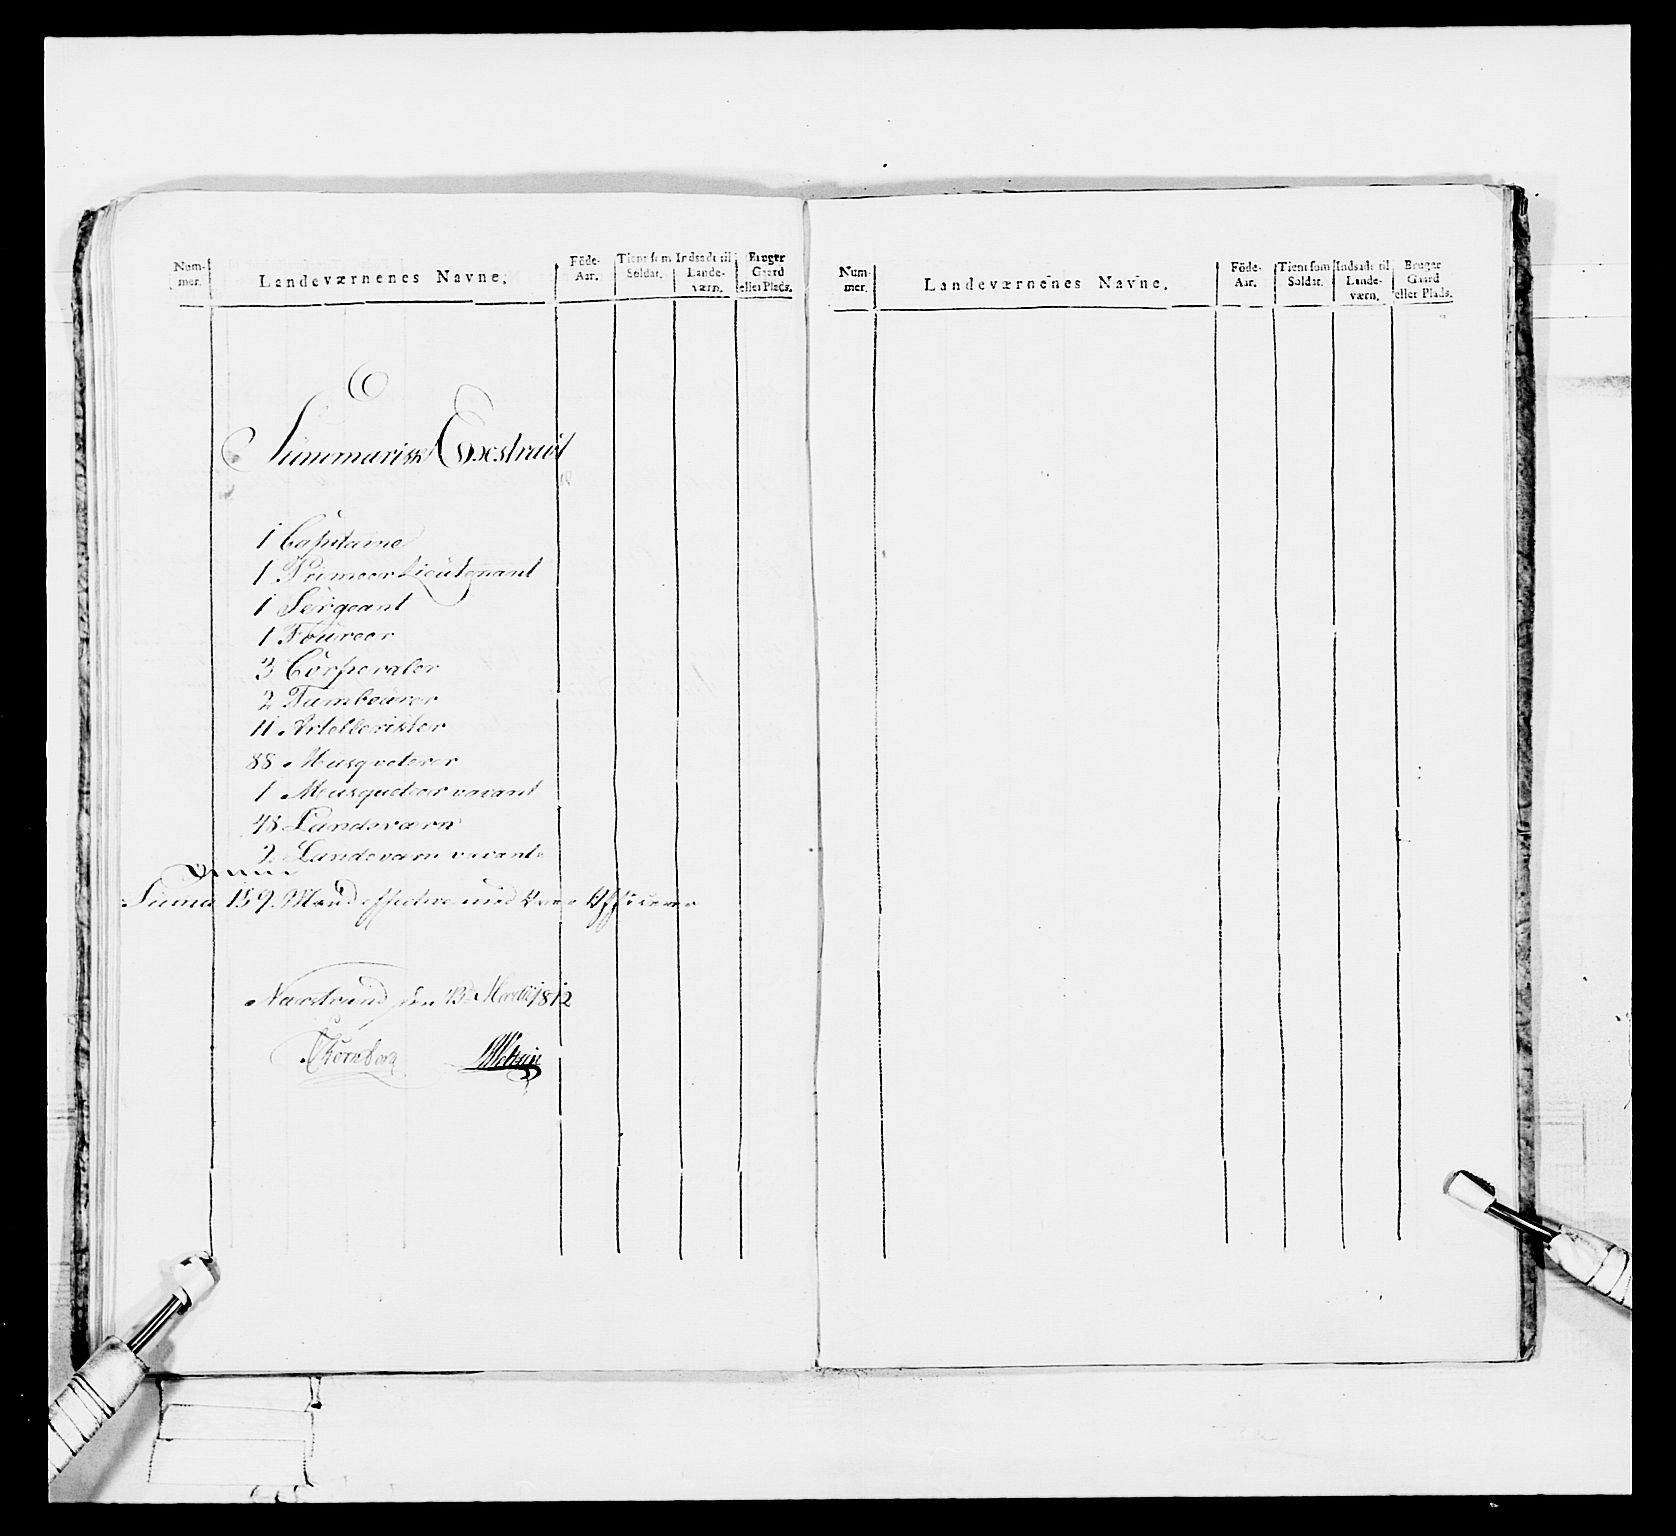 Num- mer.
Landeværnenes Navne.
Föde- Aar.
Tient som Soldat.
Indsadt til Lande- værn.
Bruger Gaard eller Plads.
Summarisk Exstract
1 Capitaine
1 Primeer Lieutenant
1 Sergeant
1 Foureer
3 Corperaler
2 Tambourer
11 Artellerister
88 Musqueterer
1 Musqueteer vacant
48 Landeværn
2 Landeværn vacante
Suma 159 Mand effective med Over Officerer
Naerstrand den 13de Martii 1812
Num- mer.
Landeværnenes Navne.
Föde- Aar.
Tient som Soldat.
Indsadt til Lande- værn.
Bruger Gaard eller Plads.